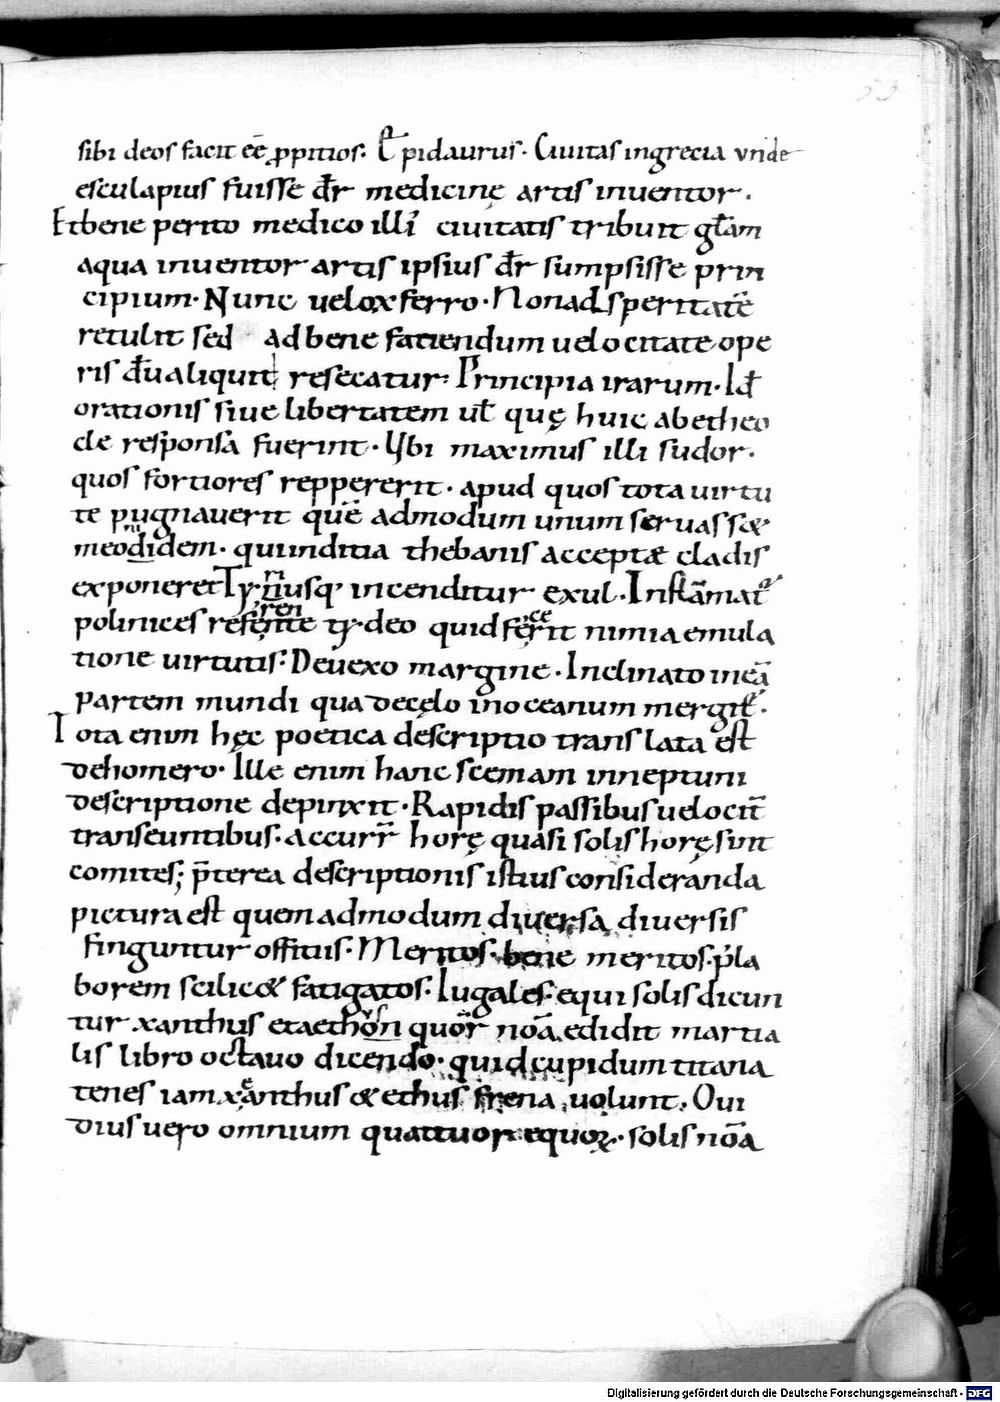 53
sibi deos facit eē ꝓpitios. Epidaurus. Ciuitas ingrecia vnde
esculapius fuisse dr̄ medicinę artis inuentor.
Et bene perito medico illi᷒ ciuitatis tribuit gl̄am
aqua inuentor artis ipsius dr̄ sumpsisse prin
cipium. Nunc uelox ferro. Non ad speritatē
retulit sed ad bene fatiendum uelocitate ope
ris dū aliquit resecatur. Principia irarum. Id ł
orationis siue libertatem ut̄ quę huic ab etheo
cle responsa fuerint. Ubi maximus illi sudor.
quos fortiores reppererit. apud quos tota uirtu
te pugnauerit quē admodum unum seruass&
meodidem. qui inditia thebanis acceptæ cladis
exponeret Tyriiusq; incenditur exul. Inflāmat᷒
polinices referente tydeo quid fecerit nimia emula
tione uirtutis. Deuexo margine. Inclinato in eā
partem mundi qua de cęlo in oceanum mergit᷒.
Tota enim hęc poetica descriptio translata est
de homero. Ille enim hanc scemam in neptuni
descriptione depinxit. Rapidis passibus uelocit̄
transeuntibus. accurr̄ horę quasi solis horę sunt
comites; p̄terea descriptionis istius consideranda
pictura est quem admodum diuersa diuersis
finguntur offitiis. Meritos. bene meritos. p̱ la
borem scilic& fatigatos. Iugales. equi solis dicun
tur xanthus et aethon quor̄ noā edidit martia
lis libro octauo dicendo. quid cupidum titana
tenes iam xanthus & ethus frena uolunt. Oui
dius uero omnium quattuor equoꝝ. solis noā
Digitalisierung gefördert durch die Deutsche Forschungsgemeinschaft - DFG